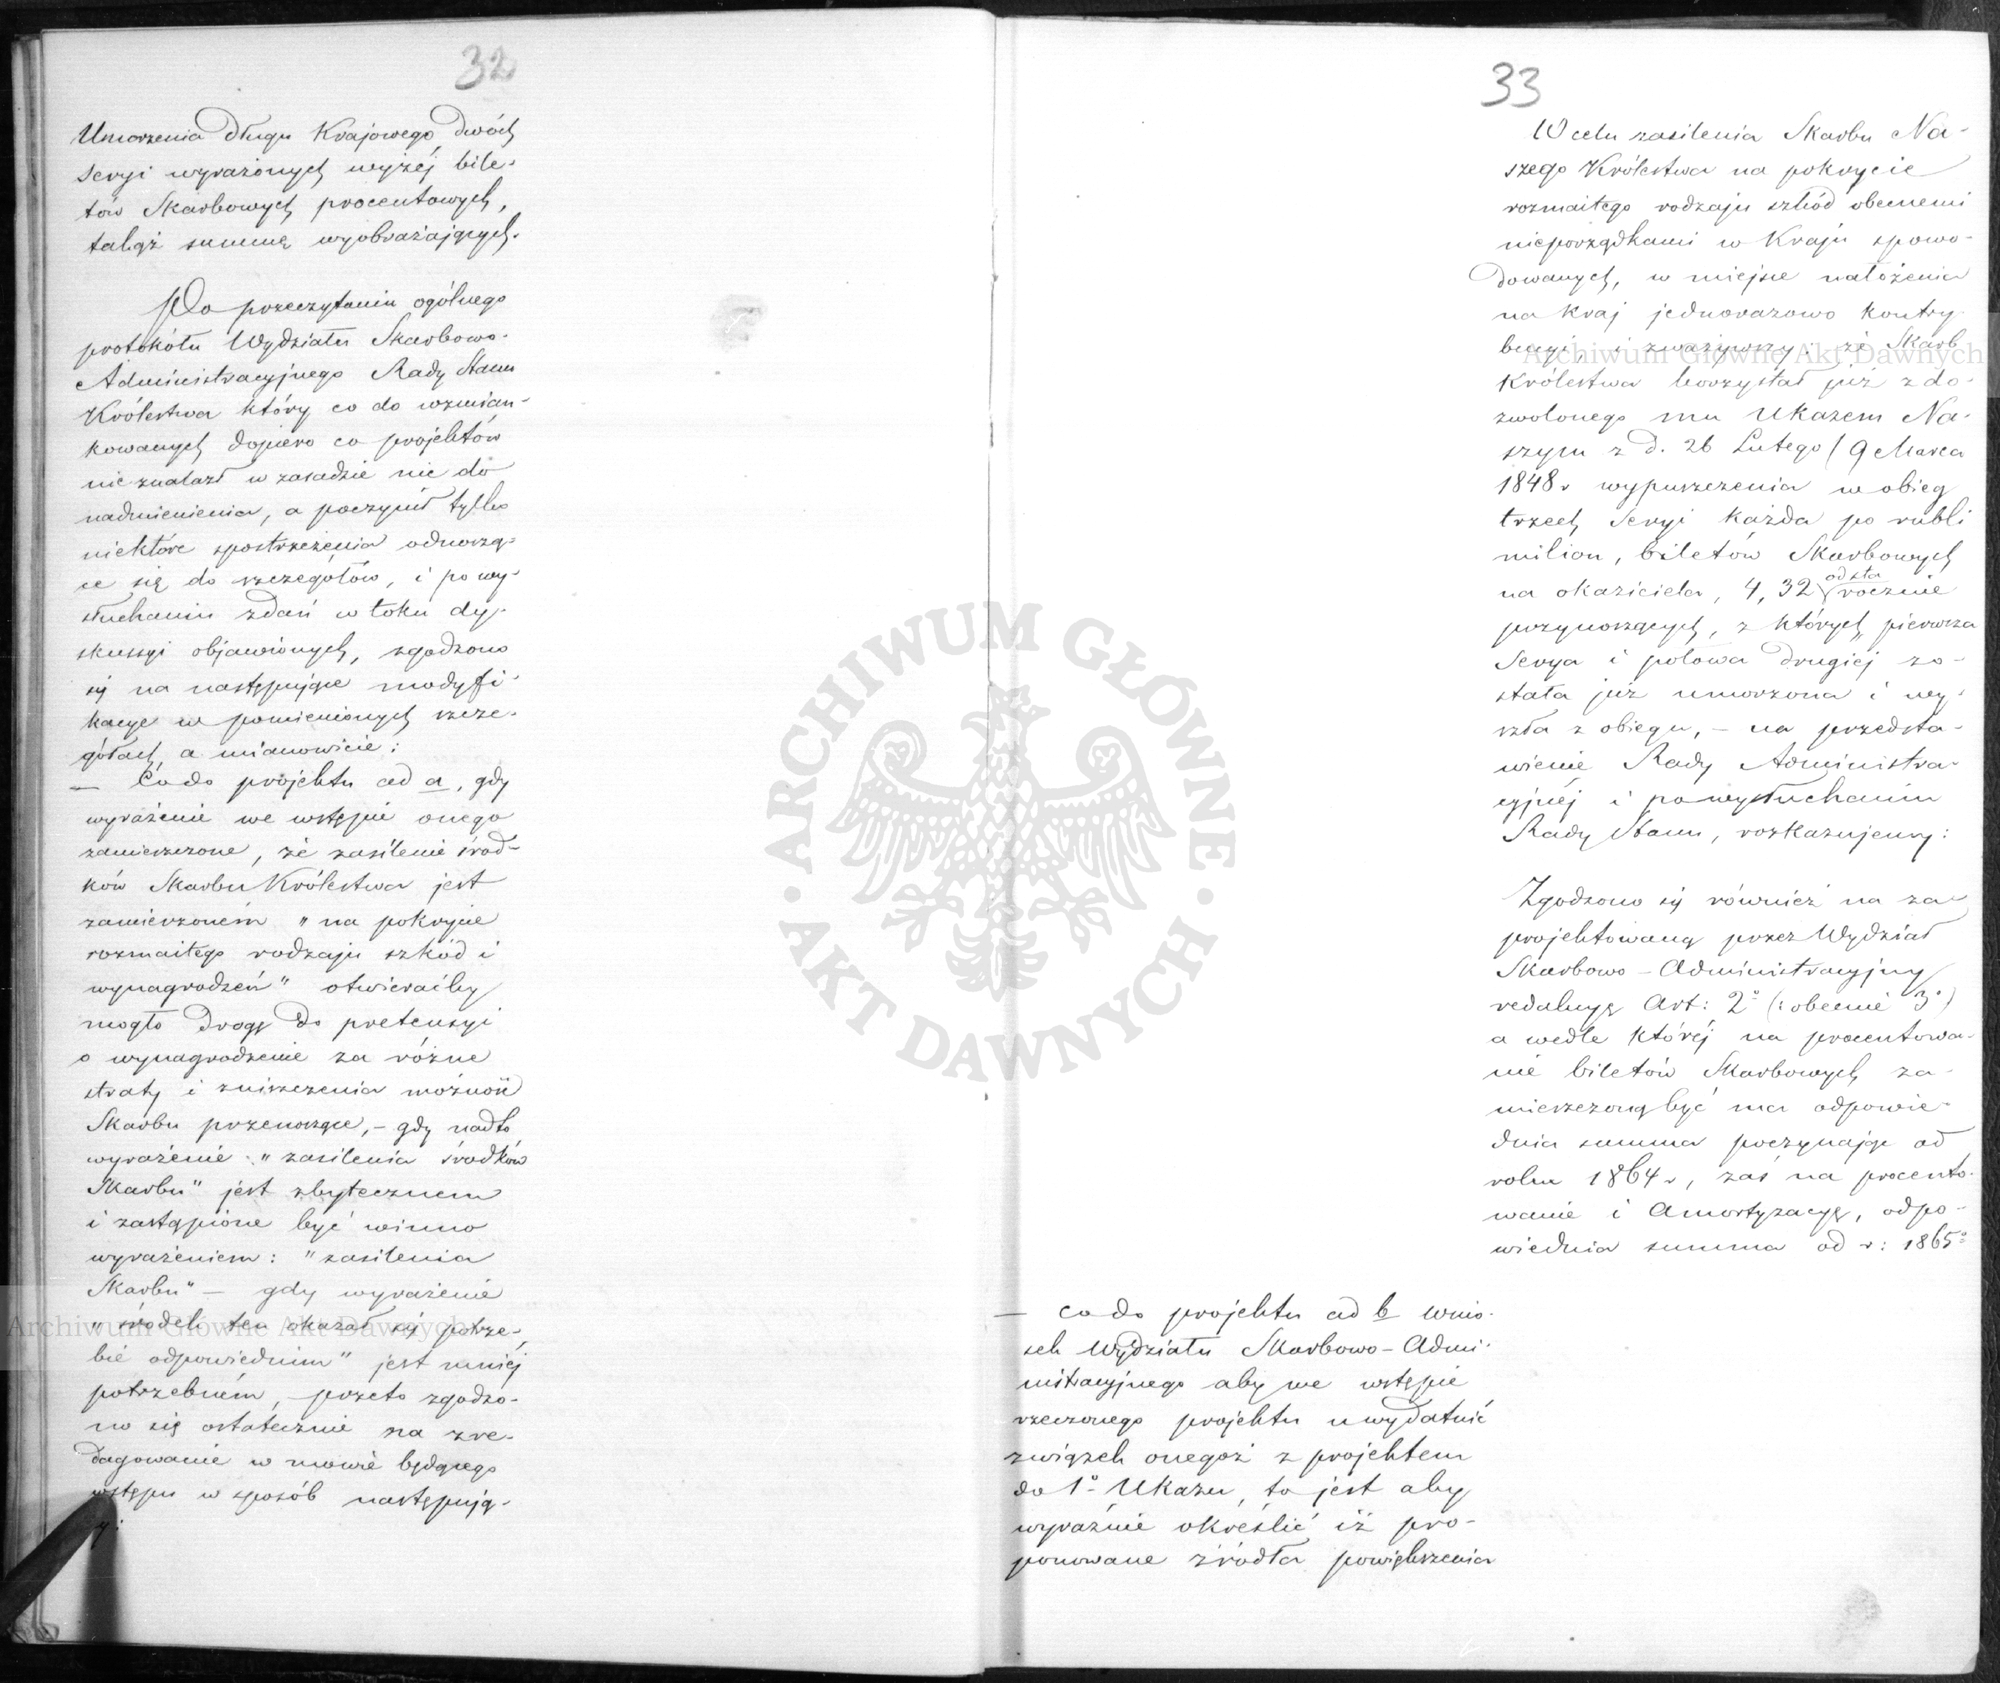 32
Umorzenia długu Krajowego dwóch
Seryi wyrażonych wyżéj bile-
tów Skarbowych procentowych,
takąż summę wyobrażających.
Po przeczytaniu ogólnego
protokółu Wydziału Skarbowo-
Administracyjnego Rady Stanu
Królestwa który co do wzmian-
kowanych dopiero co projektów
nie znalazł w zasadzie nic do
nadmienienia, a poczynił tylko
niektóre spostrzeżenia odnoszą-
ce się do szczegółów, i po wy-
słuchaniu zdań w toku dy-
skussyi objawionych, zgodzono
się na następujące modyfi-
kacye w pomienionych szcze-
gółach, a mianowicie:
— Co do projektu ad a, gdy
wyrażenie we wstępie onego
zamieszczone, że zasilenie środ-
ków Skarbu Królestwa jest
zamierzoném "na pokrycie
rozmaitego rodzaju szkód i
wynagrodzeń" otwieraćby
mogło drogę do pretensyi
o wynagrodzenie za różne
straty i zniszczenia możność
Skarbu przenoszące, – gdy nadto
wyrażenie: "zasilenia środków
Skarbu" jest zbytecznem
i zastąpione być winno
wyrażeniem: "zasilenia
Skarbu" — gdy wyrażenie
"środek ten okazał się potrze-
bie odpowiednim" jest mniéj
potrzebném, – przeto zgodzo-
no się ostatecznie na zre-
dagowanie w mowie będącego
wstępu w sposób następują-
cy:
33
W celu zasilenia Skarbu Na-
szego Królestwa na pokrycie
rozmaitego rodzaju szkód obecnemi
nieporządkami w Kraju spowo-
dowanych, w miejsce nałożenia
na Kraj jednorazowo kontry-
bucyi, i zważywszy: że Skarb
Królestwa korzystał już z do-
zwolonego mu Ukazem Na-
szym z d. 26 Lutego / 9 Marca
1848 r wypuszczenia w obieg
trzech Seryi każda po rubli
milion, biletów Skarbowych
na okaziciela, 4,32 od sta rocznie
przynoszących, z których pierwsza
Serya i połowa drugiéj zo-
stała już umorzona i wy-
szła z obiegu, – na przedsta-
wienie Rady Administra-
cyjnéj i po wysłuchaniu
Rady Stanu, rozkazujemy:
Zgodzono się również na za-
projektowaną przez Wydział
Skarbowo – Administracyjny
redakcyę Art: 2° (: obecnie 3°)
a wedle któréj na procentowa-
nie biletów Skarbowych za-
mieszczoną być ma odpowie-
dnia summa poczynając od
roku 1864 r, zaś na procento-
wanie i Amortyzacyę, odpo-
wiednia summa od r: 1865°
— co do projektu ad b wnio-
sek Wydziału Skarbowo – Admi-
nistracyjnego aby we wstępie
rzeczonego projektu uwydatnić
związek onegoż z projektem
do 1° Ukazu, to jest aby
wyraźnie określić iż pro-
ponowane źródła powiększenia
Archiwum Główne Akt Dawnych
Archiwum Główne Akt Dawnych
ARCHIWUM GŁÓWNE
AKT DAWNYCH